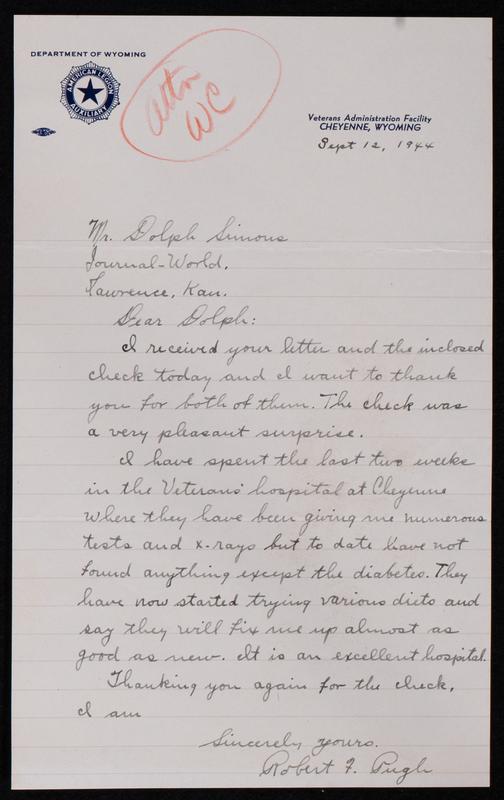 DEPARTMENT OF WYOMING
AMERICAN LEGION
AUXILIARY
Attn
WC
Veterans Administration Facility
CHEYENNE, WYOMING
Sept 12, 1944
Mr. Dolph Simons
Journal-World,
Lawrence, Kan.
Dear Dolph:
I received your letter and the inclosed
check today and I want to thank
you for both of them. The check was
a very pleasant surprise.
I have spent the last two weeks
in the Veterans' hospital at Cheyenne
where they have been giving me numerous
tests and x-rays but to date have not
found anything except the diabetes. They
have now started trying various diets and
say they will fix me up almost as
good as new. It is an excellent hospital.
Thanking you again for the check,
I am
Sincerely yours.
Robert F. Pugh